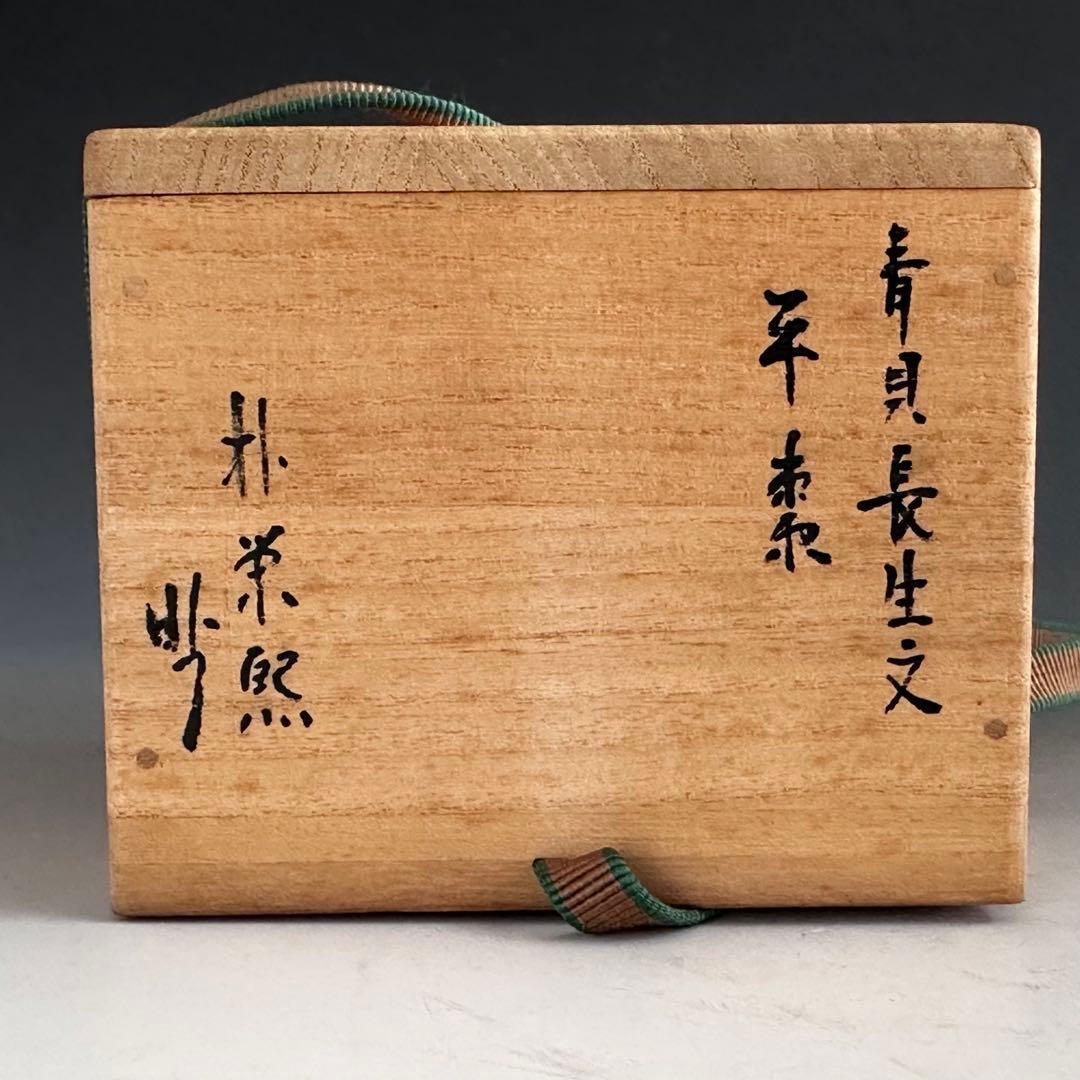 青貝長生文
平棗
朴栄熙